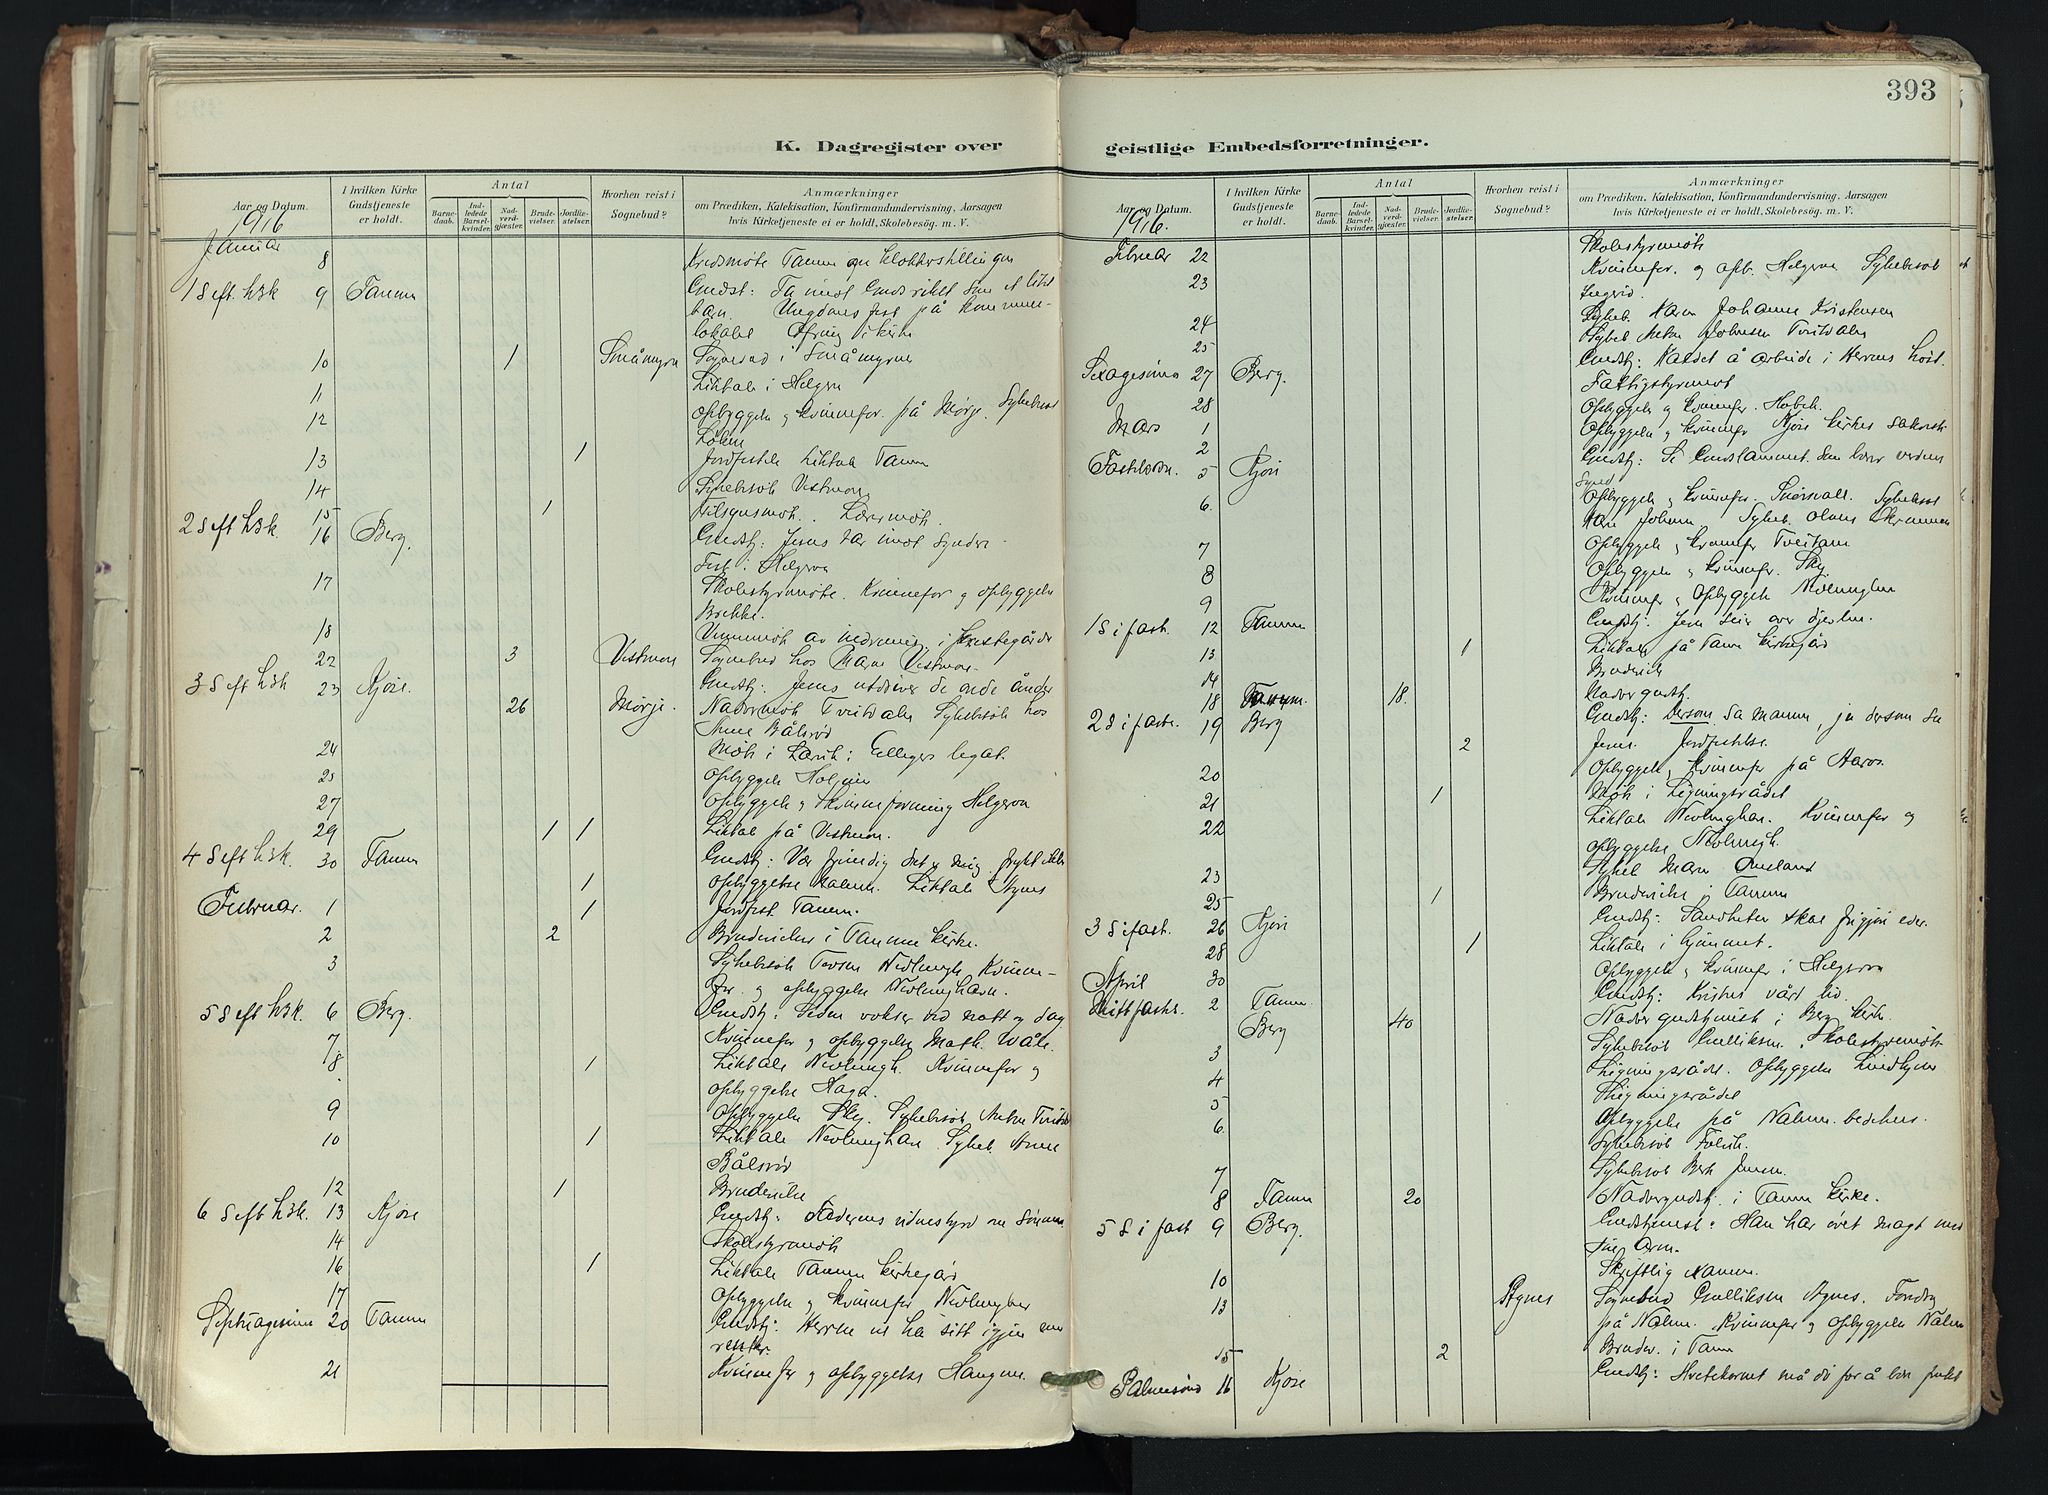 393
K. Dagregister over
geistlige Embedsforretninger.
Aar og Datum.
I hvilken Kirke Gudstjeneste er holdt.
Antal
Barnedaab.
Indledede Barselkvinder.
Nadverdgjæster.
Brudevielser.
Jordfæstelser.
Hvorhen reist i Sognebud?
Anmærkninger
om Prædiken, Katekisation, Konfirmandundervisning, Aarsagen
hvis Kirketjeneste ei er holdt, Skolebesøg. m. V.
1916
Januar
8 Kredsmøte Tanum om klokkerstillingen
1 S eft. h3k 9 Tanum Gudst: Ta imot Guds riket som et litet
barn. Ungdomsfest på kommune-
lokalet
10 1 Småmyrn Sognebud i Småmyrne
11 Liktale i Helgeroa
12 Opbyggelse og kvinnefor. på Mørje. Sykebesøk
13 1 Jordfestelse Liktale Tanum
14 Sykebesøk Vestmoen
15 1 Tilsynsmøte. Læremøte.
2 S eft h3k. 16 Berg. Gudstj: Jesus tar imot syndere
Fest i Helgeroa
17 Skolestyrmøte. Kvinnefor og opbyggelse
Brekke.
18 i Prestegårde
22 3 Vestmoen Sognebud hos Maren Vestmoen
3 S eft h3k 23 Kjose. Gudstj: Jesus utdriver de onde ånder
26 Mørje. Tveitdalen Sykebesøk hos
Anne Bålsrød
24 Møte i Larvik: legat.
25 Opbyggelse
27 Opbyggelse og kvinneforening Helgeroa
29 1 1 Liktale på Vestmoen.
4 S eft h3k. 30 Tanum Gudstj: Vær frimodig det er mig. frykt ikke
Februar. 1 1 Opbyggelse Liktale Agnes
2 1 Jordfest. Tanum.
2 Brudevielse i Tanum kirke.
3 Sykebesøk Nevlungh. Kvinne-
for. og opbyggelse Nevlunghavn.
5 S eft h3k. 6 Berg. Gudstj: Seden vokser ved natt og dag
7 Kvinnefor og opbyggelse Math.
8 1 Liktale Nevlungh. Kvinnefor og
opbyggelse Haga.
9 Opbyggelse Skej. Sykebesøk Anton
10 1 Liktale Nevlunghavn. Sykeb. Anne
Bålsrød
12 1 Brudevielse
6 S eft h3k. 13 Kjose Gudstj: Faderens vidnesbyrd om Sønnen
14 Skolestyrmøte
16 1 Liktale Tanum kirkegård
17 Opbyggelse og kvinnefor Nevlunghavn
Septuagesima 20 Tanum Gudstj: Herren vil ha sitt igjen med
renter.
21 Kvinnefor og opbyggelse Haugene.
Aar og Datum.
I hvilken Kirke Gudstjeneste er holdt.
Antal
Barnedaab.
Indledede Barselkvinder.
Nadverdgjæster.
Brudevielser.
Jordfæstelser.
Hvorhen reist i Sognebud?
Anmærkninger
om Prædiken, Katekisation, Konfirmandundervisning, Aarsagen
hvis Kirketjeneste ei er holdt, Skolebesøg. m. V.
1916.
Februar 22 Skolestyrmøte
23 Kvinnefor. og opb. Helgeroa Sykebesøk
Ingrid.
24 Sykeb. Karen Johanne Kristensen
25 Sykeb Anton Tveitdalen
Sexagesima 27 Berg. Gudstj: Kaldet å arbeide i Herrens høst.
28 Fattigstyrmøte
Mars 1 Opbyggelse og kvinnefor.
2 Opbyggelse og kvinnefor Kjose kirkes
Fastelavn. 5 Kjose Gudstj: Se Guds lammet som bærer verdens
synd
6. Opbyggelse og kvinnefor. Sykebesøk
7 Opbyggelse og kvinnefor Tveitan
8 Opbyggelse og kvinnefor. Skej.
9 Kvinnefor og Opbyggelse Nevlunghn
1 S i fast. 12 Tanum Gudstj: Jesu seier over djevlen.
13 1 Liktale på Tanum kirkegård
14 Brudevielse
18 Tanum. 18. Nadver gudstj.
2 S i faste. 19 Berg Gudstj: Dersom sa mannen, ja dersom sa
2 Jesus. Jordfestelse.
20 Opbyggelse, kvinnefor på Aaros.
21 1 Møte i Ligningsrådet
22 Liktale Nevlunghavn. Kvinnefor og
opbyggelse Nevlungh.
23 Sykeb Maren Omsland
25 1 Brudevielse i Tanum
3 S i fast. 26 Kjose Gudstj: Sandheten skal frigjøre eder.
28 1 Liktale i hjemmet.
April 30 Opbyggelse og kvinnefor i Helgeroa
Midtfaste. 2 Tanum Gudstj: Kristus vårt liv.
Berg 40 Nadver gudstjeneste i Berg kirke.
3 Sykebesøk Gulliksen. Skolestyremøte
4 Ligningsrådet. Opbyggelse Lindhjem
5 Ligningsrådet
6. Opbyggelse på Nalum bedehus.
Sykebesøk
7 Sykebesøk Berte Jensen
8 Tanum 20 Nadvergudstj. i Tanum kirke.
5 S i fast 9 Berg. Gudstjeneste: Han har øvet magt med
sin arm.
10 Skriftlig
13 Agnes Sognebud Gulliksen Agnes. Foredrag
på Nalum. Kvinnefor og opbyggelse Nalum
15 2 Brudev. i Tanum
Palmesønd 16 Kjose Gudstj: Hvetekornet må dø for å bære frukt